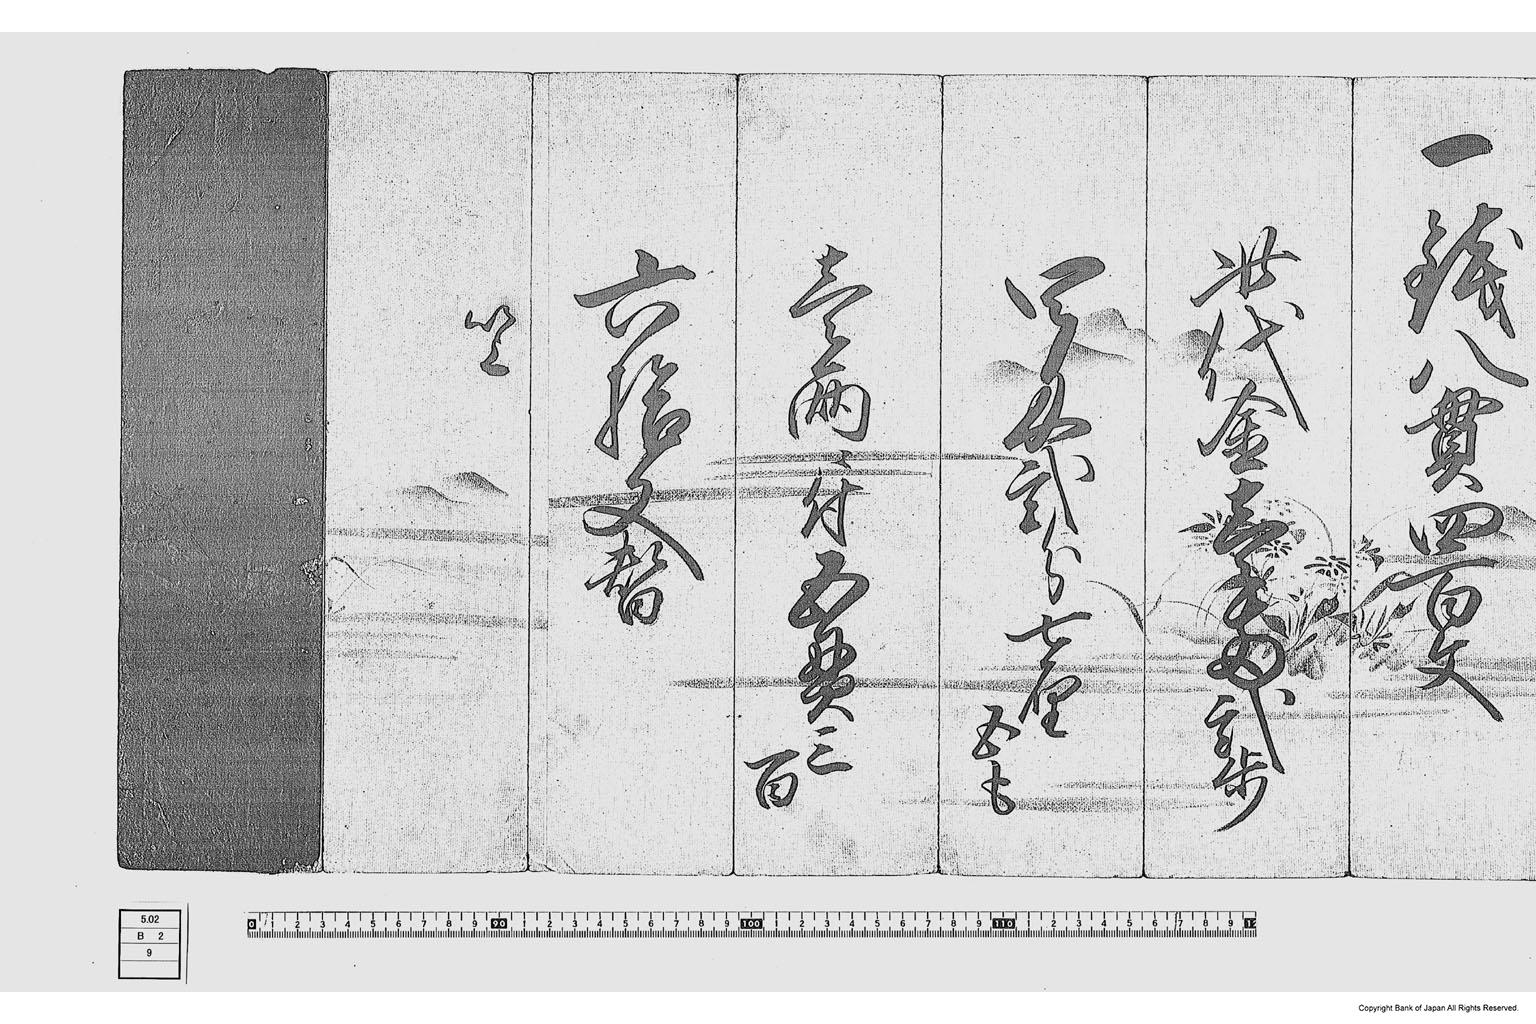 一銭八貫四百文
此代金壹両弐歩
四匁弐分七厘
五毛
壹両ニ付五貫三
百
六拾文替
以上
5.02
B 2
9
0 1 2 3 4 5 6 7 8 9 90 1 2 3 4 5 6 7 8 9 100 1 2 3 4 5 6 7 8 9 110 1 2 3 4 5 6 7 8 9 12
Copyright Bank of Japan All Rights Reserved.